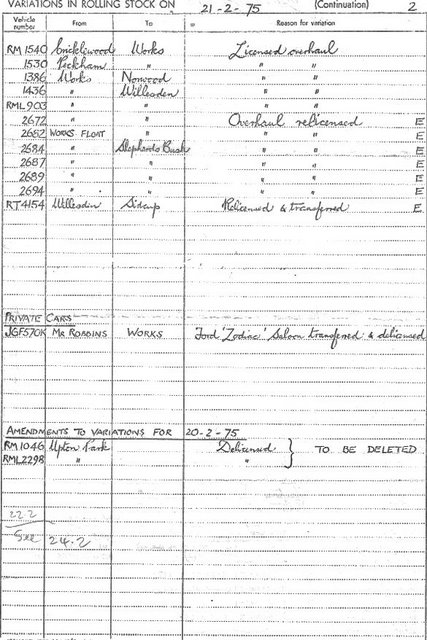 VARIATIONS IN ROLLING STOCK ON 21-2-75 (Continuation) 2
Vehicle number From To Reason for variation
RM 1540 Cricklewood Works Licensed overhaul
1530 Peckham " " "
1386 Works Norwood " "
1436 " Willesden " "
RML 903 " " " "
2672 " " Overhaul relicensed E
2682 WORKS FLOAT " " " E
2684 " Shepherds Bush " " E
2687 " " " " E
2689 " " " " E
2694 " " " " E
RT4154 Willesden Sidcup Relicensed & transferred E
PRIVATE CARS
JGF570K MR ROBBINS WORKS Ford 'Zodiac' Saloon transferred & delicensed
AMENDMENTS TO VARIATIONS FOR 20-2-75
RM1046 Upton Park Delicensed } TO BE DELETED
RML2298 " "
22.2
See 24.2